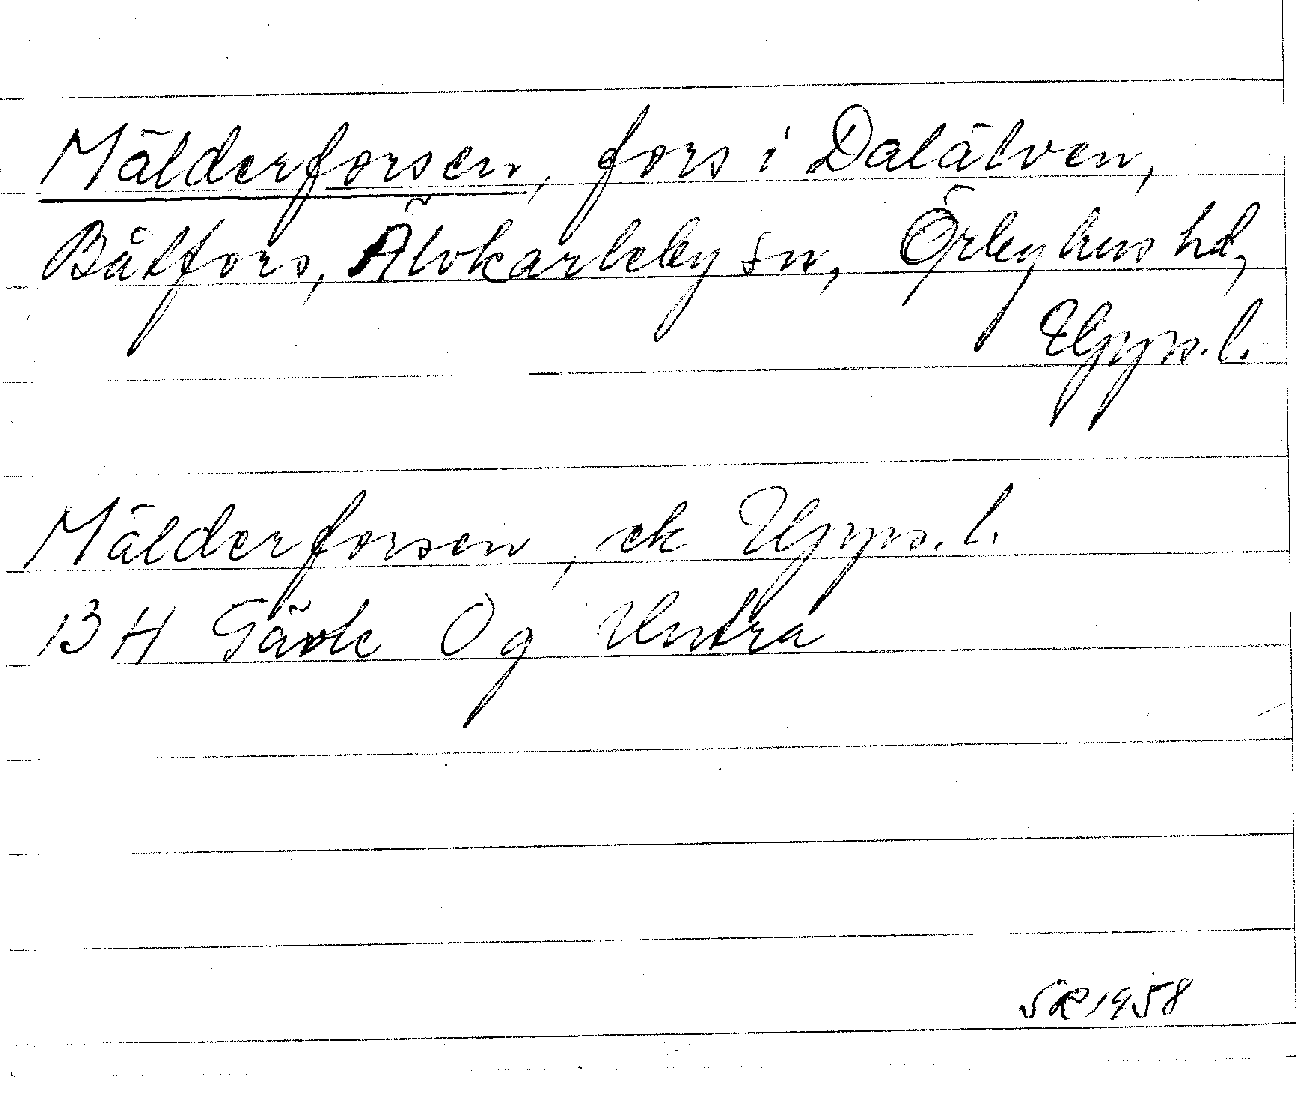 Mälderforsen, fors i Dalälven,
Båtfors, Älvkarleby sn, Örbyhus hd,
Upps.l.
Mälderforsen, ek Upps.l.
13 H Gävle Og Untra
SR 1958